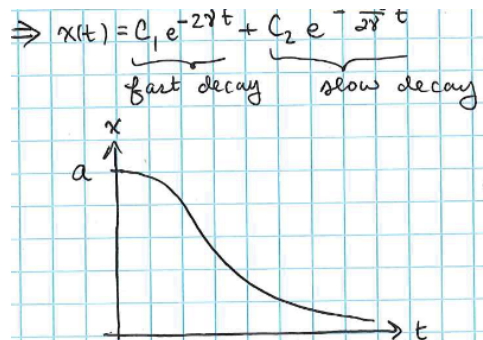 ⇒ x(t) = C₁ e^{-2γt} + C₂ e^{-\frac{}{2γ}t}
fast decay slow decay
x
a
t